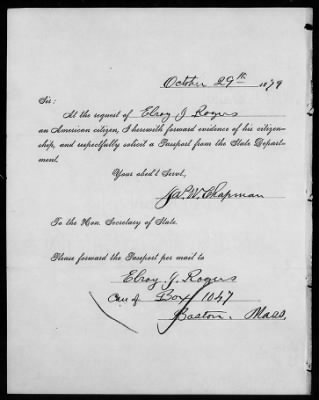 October 29th 1879
Sir:
At the request of Elroy J Rogers
an American citizen, I herewith forward evidence of his citizen-
ship, and respectfully solicit a Passport from the State Depart-
ment.
Your obed't Servt,
W. Chapman
To the Hon. Secretary of State.
Please forward the Passport per mail to
Elroy J. Rogers
Care of Box 1047
Boston. Mass.